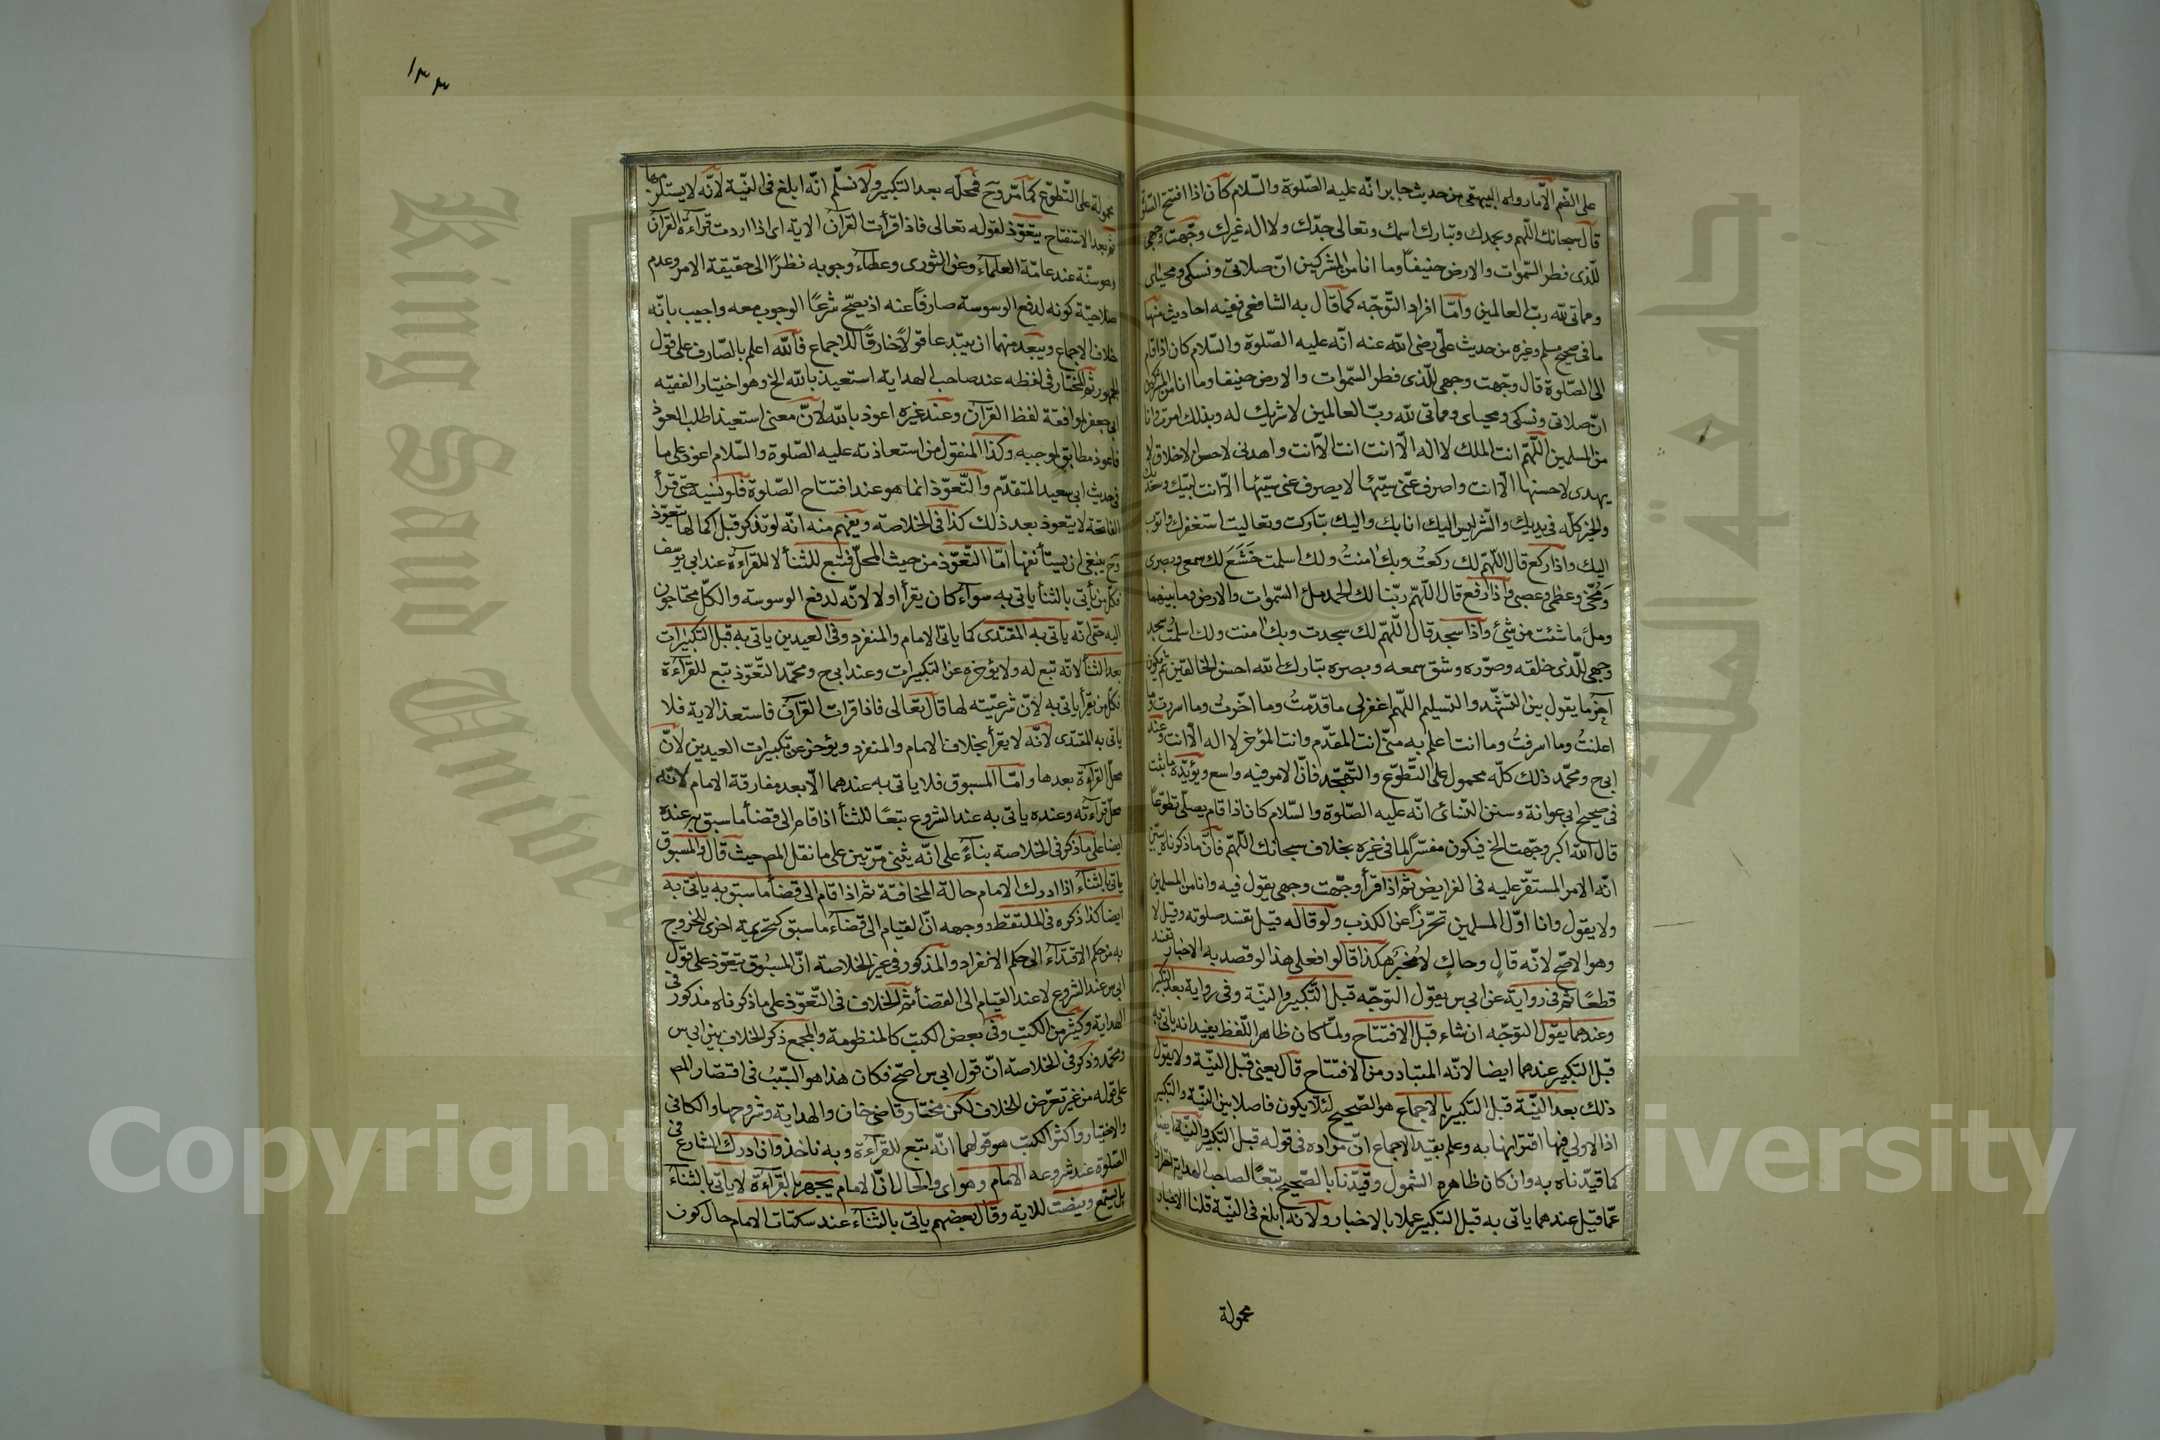 على الضم الا ما رواه البيهقى من حديث جابر انه عليه الصلوة والسلام كان اذا افتتح الصلوة
قال سبحانك اللهم وبحمدك وتبارك اسمك وتعالى جدك ولا اله غيرك وجهت وجهى
للذى فطر السموات والارض حنيفا وما انا من المشركين ان صلاتى ونسكى ومحياى
ومماتى لله رب العالمين واما افراد التوجه كما قال به الشافعى ففيه احاديث منها
ما فى صحيح مسلم وغيره من حديث على رضى الله عنه انه عليه الصلوة والسلام كان اذا قام
الى الصلوة قال وجهت وجهى للذى فطر السموات والارض حنيفا وما انا من المشركين
ان صلاتى ونسكى ومحياى ومماتى لله رب العالمين لا شريك له وبذلك امرت وانا
من المسلمين اللهم انت الملك لا اله الا انت انت لا انت واهدنى لاحسن الاخلاق لا
يهدى لاحسنها الا انت واصرف عنى سيئها لا يصرف عنى سيئها الا انت لبيك وسعديك
والخير كله فى يديك والشر ليس اليك انا بك واليك تباركت وتعاليت استغفرك واتوب
اليك واذا ركع قال اللهم لك ركعت وبك امنت ولك اسلمت خشع لك سمعى وبصرى
ومخى وعظمى وعصبى واذا رفع قال اللهم ربنا لك الحمد ملئ السموات والارض وما بينهما
وملء ما شئت من شئ واذا سجد قال اللهم لك سجدت وبك امنت ولك اسلمت سجد
وجهى للذى خلقه وصوره وشق سمعه وبصره تبارك الله احسن الخالقين ثم يكون
آخر ما يقول بين التشهد والتسليم اللهم اغفر لى ما قدمت وما اخرت وما اسررت وما
اعلنت وما اسرفت وما انت اعلم به منى انت المقدم وانت المؤخر لا اله الا انت وعند
ابى ح ومحمد ذلك كله محمول على التطوع والتهجد فان الامر فيه واسع ويؤيده ما ثبت
فى صحيح ابى عوانة وسنن النسائى انه عليه الصلوة والسلام كان اذا قام يصلى تطوعا
قال الله اكبر وجهت الخ فيكون مفسرا لما فى غيره بخلاف سبحانك اللهم فان ما ذكرناه يبين
انه الامر المستقر عليه فى الفرايض ثم اذا قرأ وجهت وجهى يقول فيه وانا من المسلمين
ولا يقول وانا اول المسلمين تحرزا عن الكذب ولو قاله قيل تفسد صلوته وقيل لا
وهو الاصح لانه قال وحاك لا مخبر هكذا قالوا فعلى هذا لو قصد به الاخبار تفسد
قطعا ثم فى رواية عن ابى س يقول التوجه قبل التكبير والنية وفى رواية بعد التكبير
وعندهما يقول التوجه ان شاء قبل الافتتاح ولما كان ظاهر اللفظ يفيد انه ياتى به
قبل التكبير عندهما ايضا لانه المتبادر من الافتتاح قال يعنى قبل النية ولا يقول
ذلك بعد النية قبل التكبير بالاجماع هو الصحيح لئلا يكون فاصلا بين النية والتكبير
اذ الاولى فيها اقترانها به وعلم بقيد الاجماع ان مراده فى قوله قبل التكبير والنية ايضا
كما قيدناه به وان كان ظاهره الشمول وقيدنا بالصحيح تبعا لصاحب الهداية احترازا
عما قيل عندهما ياتى به قبل التكبير عملا بالاخبار ولانه ابلغ فى النية قلنا الاخبار
محمولة
١٣٣
محمولة على التطوع كما مر وح فمحله بعد التكبير ولا نسلم انه ابلغ فى النية لانه لا يستلزمها
ثم بعد الاستفتاح يتعوذ لقوله تعالى فاذا قرأت القرآن الاية اى اذا اردت قراءة القرآن
وهو سنة عند عامة العلماء وعن الثورى وعطاء وجوبه نظرا الى حقيقة الامر وعدم
صلاحية كونه لدفع الوسوسة صارفا عنه اذ يصح شرعا الوجوب معه واجيب بانه
خلاف الاجماع ويبعد منهما ان يبتدعا قولا خارقا للاجماع فالله اعلم بالصارف على قول
الجمهور ثم المختار فى لفظه عند صاحب الهداية استعيذ بالله الخ وهو اختيار الفقيه
ابى جعفر لموافقة لفظ القرآن وعند غيره اعوذ بالله لان معنى استعيذ اطلب العوذ
فاعوذ مطابق لموجبه وكذا المنقول من استعاذته عليه الصلوة والسلام اعوذ على ما
فى حديث ابى سعيد المتقدم والتعوذ انما هو عند افتتاح الصلوة فلو نسيه حتى قرأ
الفاتحة لا يتعوذ بعد ذلك كذا فى الخلاصه ويفهم منه انه لو تذكر قبل اكمالها يتعوذ
وح ينبغى ان يستأنفها اما التعوذ من حيث المحل فتبع للثنأ لا للقراءة عند ابى يوسف
فكل من يأتى بالثنأ ياتى به سواء كان يقرأ اولا لانه لدفع الوسوسة والكل محتاجون
اليه حتى انه ياتى به المقتدى كما ياتى الامام والمنفرد وفى العيدين ياتى به قبل التكبيرات
بعد الثنأ لانه تبع له ولا يؤخره عن التكبيرات وعند ابى ح ومحمد التعوذ تبع للقراءة
فكل من يقرأ ياتى به لان شرعيته لها قال تعالى فاذا قرات القرآن فاستعذ الاية فلا
ياتى به المقتدى لانه لا يقرأ بخلاف الامام والمنفرد ويؤخر عن تكبيرات العيدين لان
محل القراءة بعدها واما المسبوق فلا ياتى به عندهما الا بعد مفارقة الامام لانه
محل قراءته وعنده ياتى به عند الشروع تبعا للثنأ اذا قام الى قضأ ما سبق به عنده
ايضا على ما ذكر فى الخلاصة بناء على انه يثنى مرتين على ما نقل المص حيث قال والمسبوق
ياتى بالثناء اذا ادرك الامام حالة المخافتة ثم اذا قام الى قضأ ما سبق به ياتى به
ايضا كذا ذكره فى الملتقط ووجهه ان القيام الى قضاء ما سبق كتحريمة اخرى للخروج
به من حكم الاقتداء الى حكم الانفراد والمذكور فى غير الخلاصة ان المسبوق يتعوذ على قول
ابى س عند الشروع لا عند القيام الى القضأ ثم الخلاف فى التعوذ على ما ذكرناه مذكور فى
الهداية وكثير من الكتب وفى بعض الكتب كالمنظومة والمجمع ذكر الخلاف بين ابى س
ومحمد وذكر فى الخلاصة ان قول ابى س اصح فكان هذا هو السبب فى اقتصار المص
على قوله من غير تعرض للخلاف لكن مختار قاضى خان والهداية وشروحها والكافى
والاختيار واكثر الكتب هو قولهما انه تبع للقراءة وبه ناخذ وان ادرك الشارع فى
الصلوة عند شروعه الامام وهو اى والحال ان الامام يجهر بالقراءة لا ياتى بالثناء
بل يستمع وينصت للاية وقال بعضهم ياتى بالثناء عند سكتات الامام حال كون
King Saud University
جامعة الملك سعود
Copyright © King Saud University